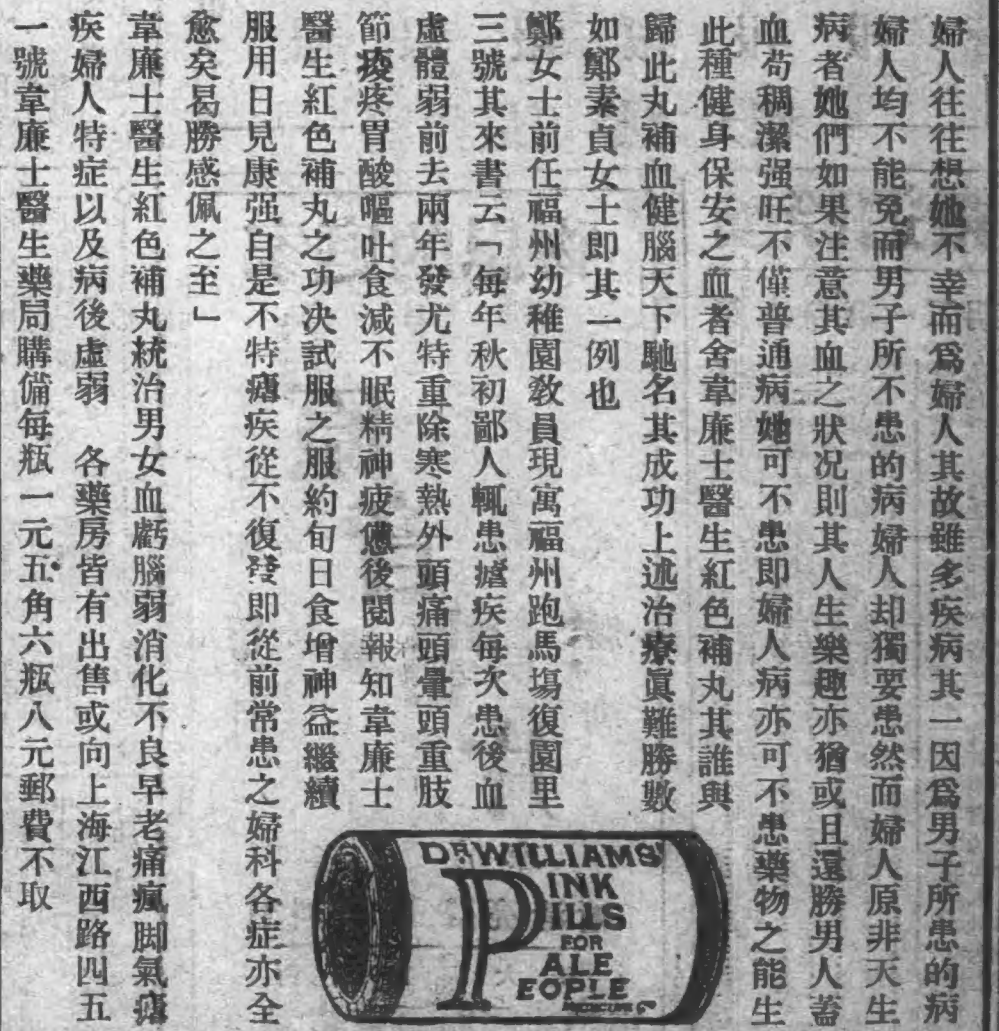 婦人往往想她不幸而爲婦人其故雖多疾病其一因爲男子所患的病
婦人均不能免而男子所不患的病婦人却獨要患然而婦人原非天生
病者她們如果注意其血之狀况則其人生樂趣亦猶或且還勝男人蓋
血苟稠潔强旺不僅普通病她可不患即婦人病亦可不患藥物之能生
此種健身保安之血者舍韋廉士醫生紅色補丸其誰與
歸此丸補血健腦天下馳名其成功上述治療眞難勝數
如鄭素貞女士即其一例也
鄭女士前任福州幼稚園敎員現寓福州跑馬塲復園里
三號其來書云「每年秋初鄙人輒患瘧疾每次患後血
虛體弱前去兩年發尤特重除寒熱外頭痛頭暈頭重肢
節痠疼胃酸嘔吐食減不眠精神疲憊後閱報知韋廉士
醫生紅色補丸之功决試服之服約旬日食增神益繼續
服用日見康强自是不特瘧疾從不復發即從前常患之婦科各症亦全
愈矣曷勝感佩之至」
韋廉士醫生紅色補丸統治男女血虧腦弱消化不良早老痛瘋脚氣瘧
疾婦人特症以及病後虛弱 各藥房皆有出售或向上海江西路四五
一號韋廉士醫生藥局購備每瓶一元五角六瓶八元郵費不取
DR WILLIAMS'
PINK
PILLS
FOR
PALE
PEOPLE